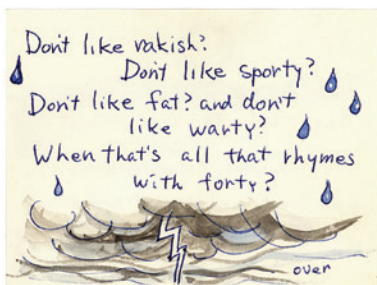 Don't like rakish?
Don't like sporty?
Don't like fat? and don't
like warty?
When that's all that rhymes
with forty?
over